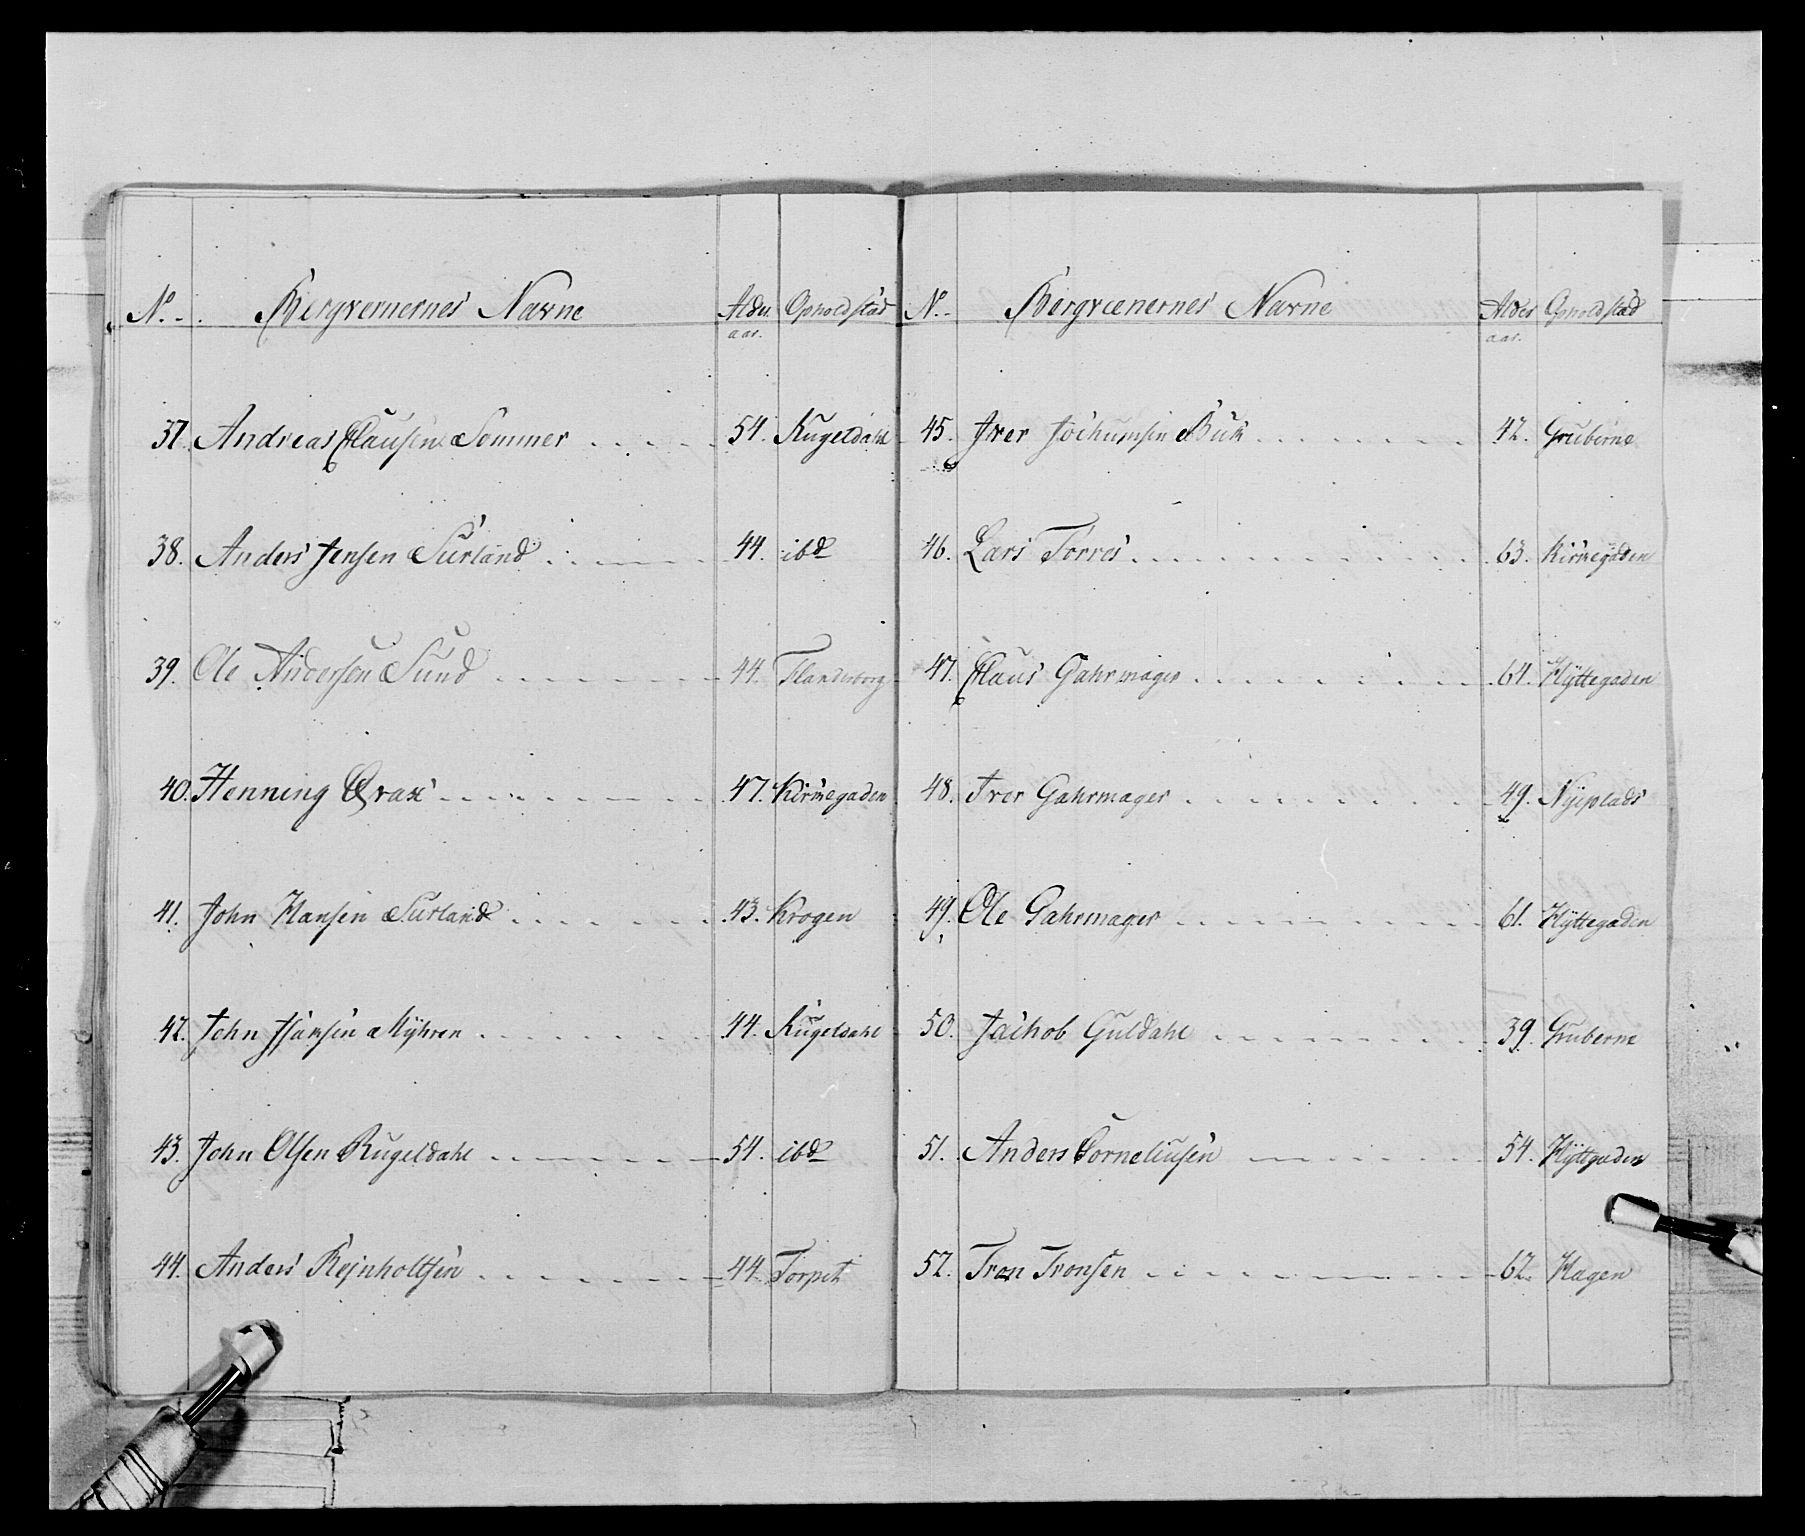 No. Bergvernernes Navne Alder aar. Opholdstad
37. Andreas Clausen Sommer 54. Kugeldahl
38. Anders Jensen Surland 44. ibd
39. Ole Andersen Sund 44. Flanderborg
40. Henning Qvax 47. Kirkegaden
41. John Hansen Surland 43. Krogen
42. John Hansen Myhren 44. Kugeldahl
43. John Olsen Kugeldahl 54. ibd
44. Anders Rejnholtsen 44. Torpet
No. Bergvænernes Navne Alder aar. Opholdstad
45. Iver Jochumsen Buk 42. Gruberne
46. Lars Torres 63. Kirkegaden
47. Claus Gahrmager 64. Hyttegaden
48. Iver Gahrmager 49. Nyeplads
49. Ole Gahrmager 61. Hyttegaden
50. Jachob Guldahl 39. Gruberne
51. Anders Corneliusen 54. Hyttgaden
52. Tron Tronsen 62. Hagen